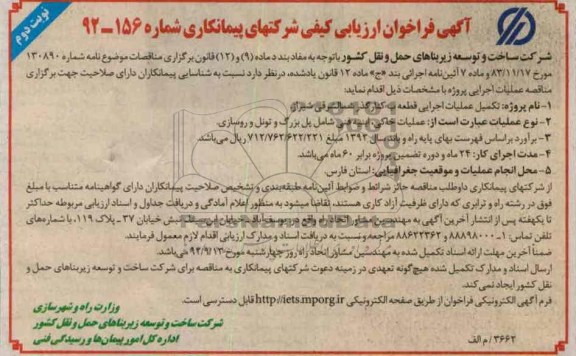 نوبت دوم
آگهی فراخوان ارزیابی کیفی شرکتهای پیمانکاری شماره ۱۵۶ــ۹۲
شرکت ساخت و توسعه زیربناهای حمل و نقل کشور باتوجه به مفاد بند د ماده (۹) و (۱۲) قانون برگزاری مناقصات موضوع نامه شماره ۱۳۰۸۹۰
مورخ ۸۳/۱۱/۱۷ و ماده ۷ آئین‌نامه اجرائی بند «ج» ماده ۱۲ قانون یادشده، درنظر دارد نسبت به شناسایی پیمانکاران دارای صلاحیت جهت برگزاری
مناقصه عملیات اجرایی پروژه با مشخصات ذیل اقدام نماید:
۱- نام پروژه: تکمیل عملیات اجرایی قطعه یک کنارگذر شمال شرقی شیراز
۲- نوع عملیات عبارت است از: عملیات خاکی، ابنیه فنی شامل پل بزرگ و تونل و روسازی.
۳- برآورد براساس فهرست بهای پایه راه و باند سال ۱۳۹۲ مبلغ ۷۱۲/۷۶۲/۶۲۲/۲۳۱ ریال می‌باشد.
۴- مدت اجرای کار: ۲۴ ماه و دوره تضمین پروژه برابر ۶۰ ماه می‌باشد.
۵- محل انجام عملیات و موقعیت جغرافیایی: استان فارس.
از شرکتهای پیمانکاری داوطلب مناقصه حائز شرائط و ضوابط آئین‌نامه طبقه‌بندی و تشخیص صلاحیت پیمانکاران دارای گواهینامه متناسب با مبلغ
فوق در رشته راه و ترابری که دارای ظرفیت آزاد کاری هستند، تقاضا میشود به منظور اعلام آمادگی و دریافت جداول و اسناد ارزیابی مربوطه حداکثر
تا یکهفته پس از انتشار آخرین آگهی به مهندسین مشاور اتحاد راه واقع در یوسف‌آباد، خیابان ابن سینا، نبش خیابان ۳۷ ـ پلاک ۱۱۹، با شماره‌های
تلفن تماس: ۱ـ ۸۸۸۹۸۰۰۰ و ۸۸۶۲۲۳۶۲ مراجعه و نسبت به دریافت اسناد و مدارک ارزیابی اقدام لازم معمول فرمایند.
ضمناً آخرین مهلت ارائه اسناد تکمیل شده به مهندسین مشاور اتحاد راه روز چهارشنبه مورخ ۹۲/۹/۱۳ می‌باشد.
ارسال اسناد و مدارک تکمیل شده هیچ‌گونه تعهدی در زمینه دعوت شرکتهای پیمانکاری به مناقصه برای شرکت ساخت و توسعه زیربناهای حمل و
نقل کشور ایجاد نمی‌کند.
فرم آگهی الکترونیکی فراخوان از طریق صفحه الکترونیکی http://iets.mporg.ir قابل دسترسی است.
وزارت راه و شهرسازی
شرکت ساخت و توسعه زیربناهای حمل و نقل کشور
اداره کل امور پیمان‌ها و رسیدگی فنی
۳۶۶۲/ م الف